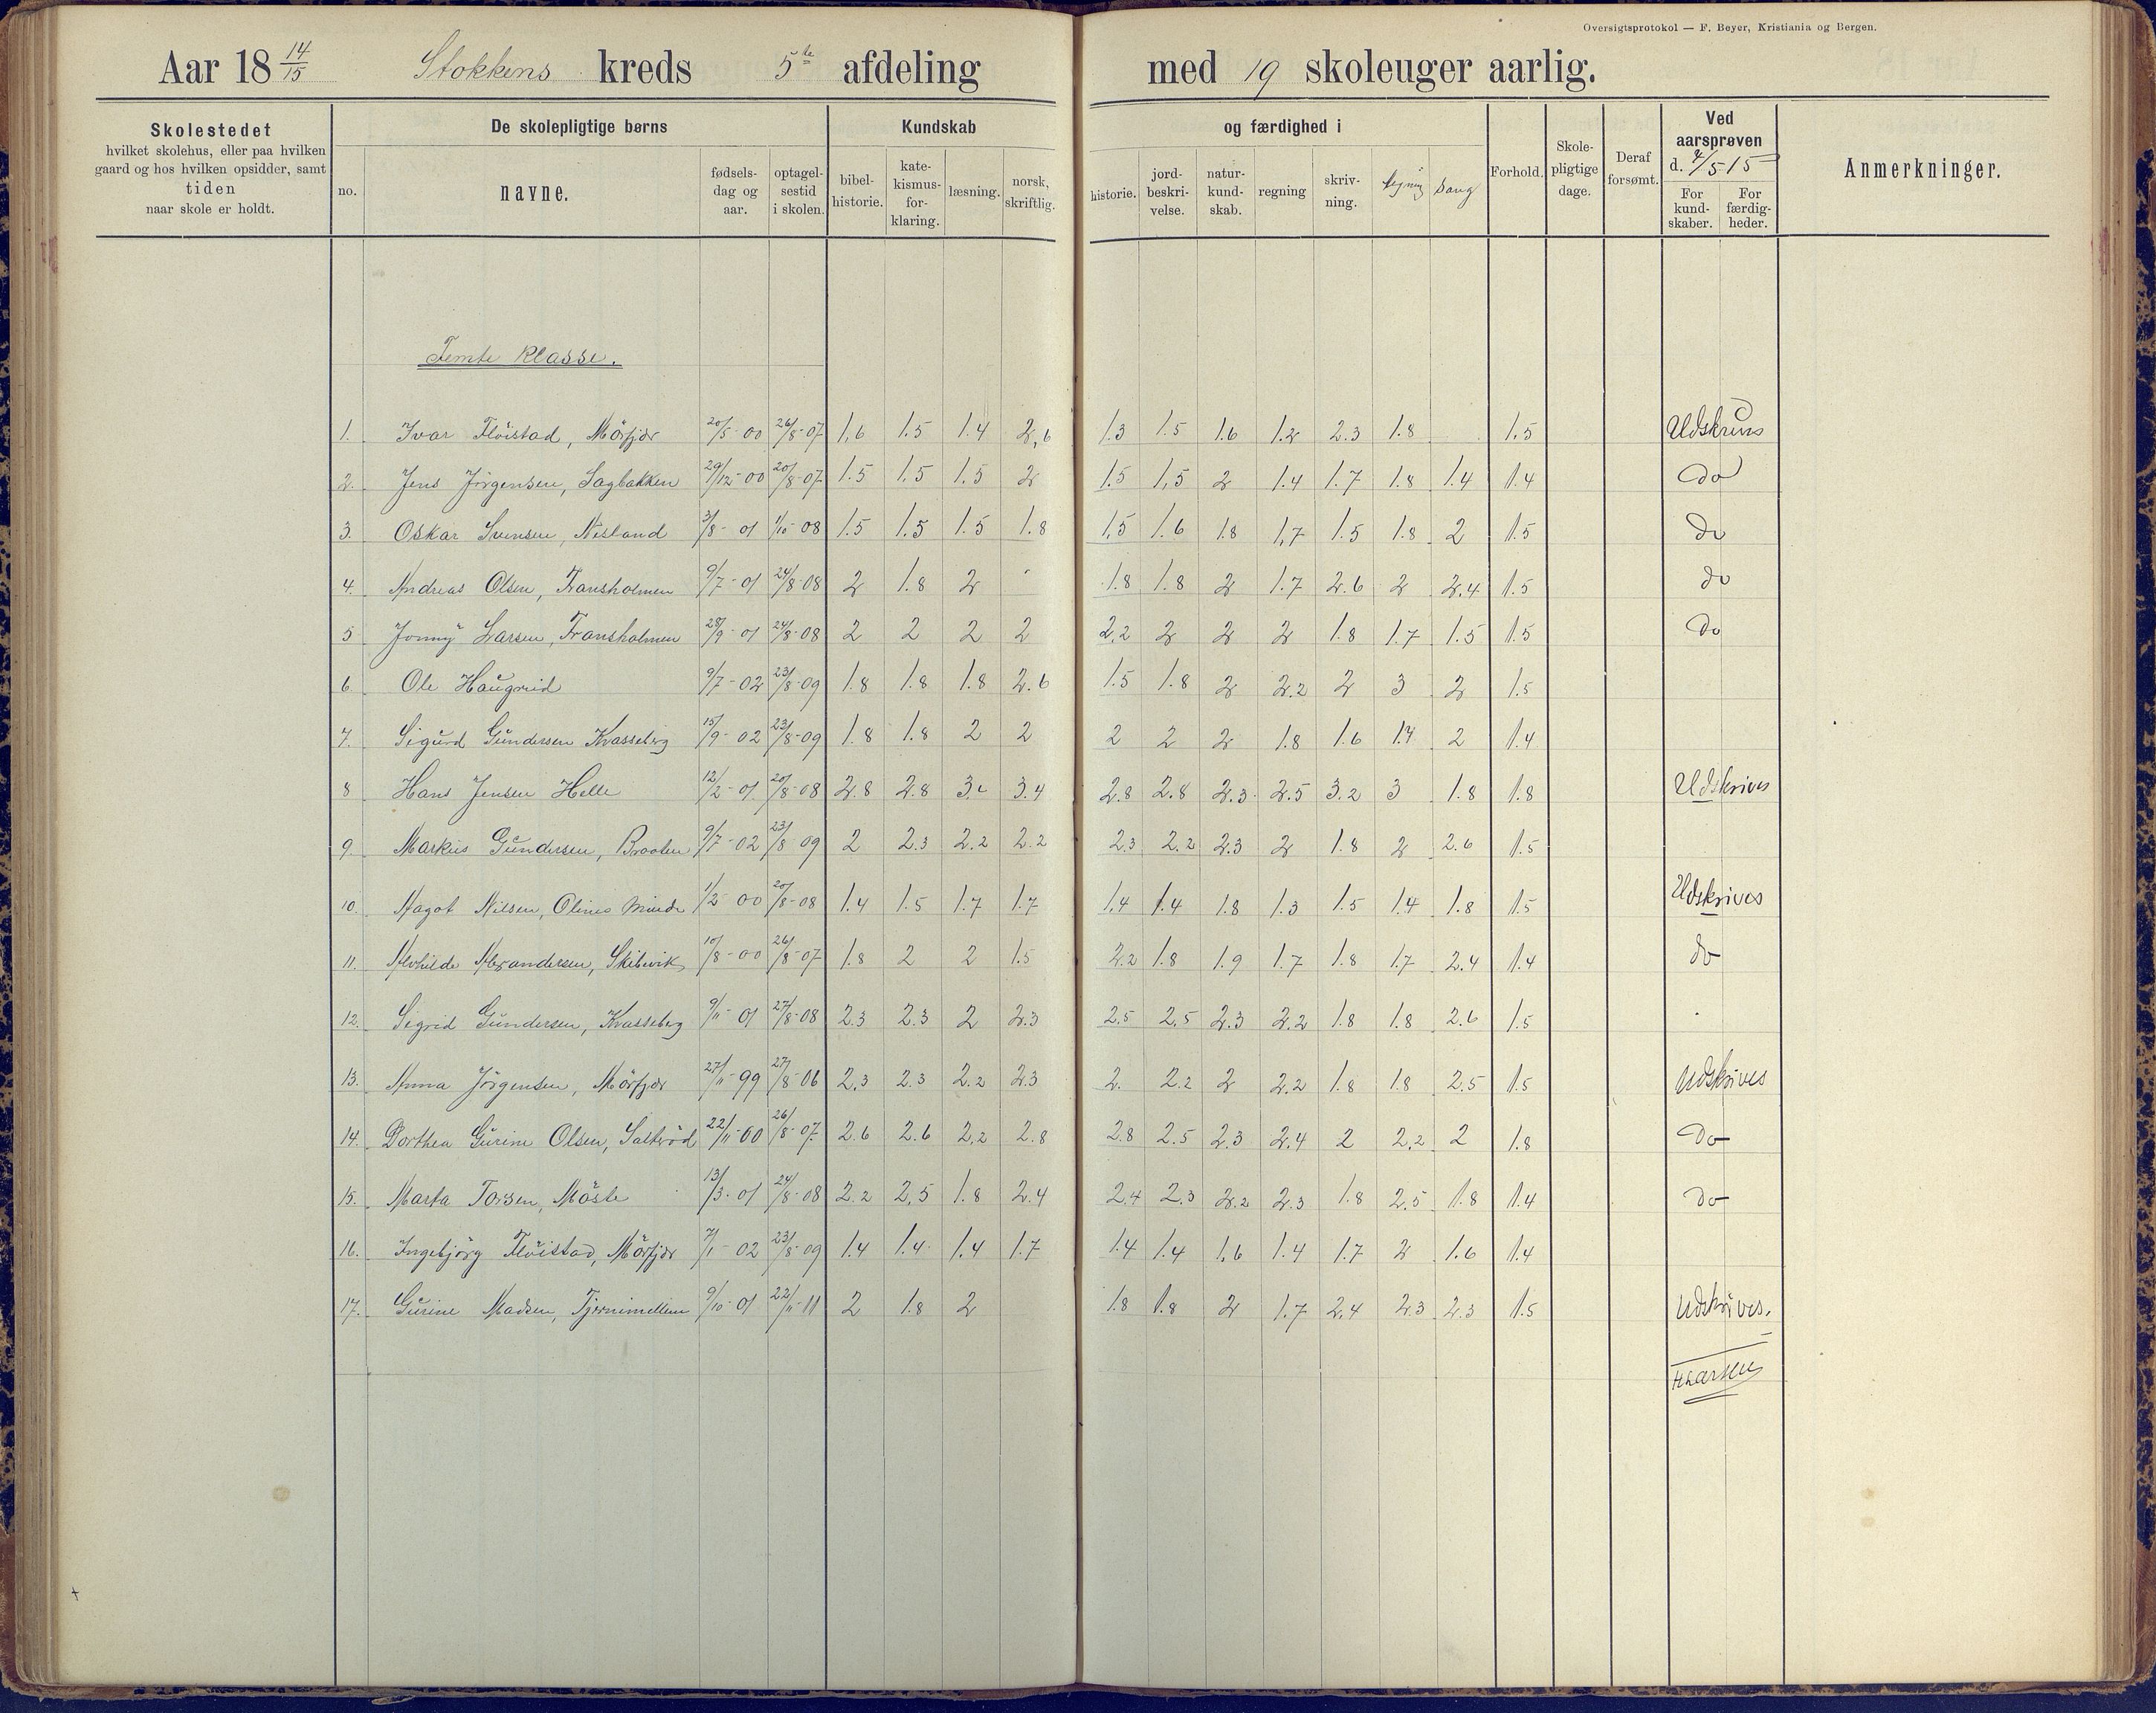 Oversigtsprotokol — F. Beyer, Kristiania og Bergen.
Aar 18 14/15 Stokkens kreds 5te afdeling med 19 skoleuger aarlig.
Skolestedet hvilket skolehus, eller paa hvilken gaard og hos hvilken opsidder, samt tiden naar skole er holdt.
De skolepligtige børns
no. navne. fødsels-dag og aar. optagel-sestid i skolen.
Kundskab og færdighed i
bibel-historie. kate-kismus-for-klaring. læsning. norsk, skriftlig. historie. jord-beskri-velse. natur-kund-skab. regning skriv-ning. tegning sang
Forhold. Skole-pligtige dage. Deraf forsømt.
Ved aarsprøven d. 4/5 15
For kund-skaber. For færdig-heder.
Anmerkninger.
Femte klasse.
1. Ivar Flöistad, Mörfjær 20/5-00 26/8-07 1,6 1.5 1.4 2,6 1.3 1.5 1.6 1.2 2.3 1.8 1.5 Udskrives
2. Jens Jörgensen, Sagbakken 29/12-00 20/8-07 1.5 1,5 1.5 2 1.5 1,5 2 1.4 1.7 1.8 1.4 1.4 do
3. Oskar Svensen, Nesland 3/8-01 1/10-08 1.5 1.5 1.5 1.8 1,5 1.6 1.8 1,7 1.5 1.8 2 1.5 do
4. Andreas Olsen, Fransholmen 9/7-01 24/8-08 2 1.8 2 1.8 1.8 2 1.7 2.6 2 2.4 1.5 do
5 Jonny Larsen, Fransholmen 28/9-01 24/8-08 2 2 2 2 2,2 2 2 2 1.8 1.7 1.5 1.5 do
6. Ole Haugreid 9/7-02 23/8-09 1.8 1.8 1.8 2.6 1.5 1.8 2 2.2 2 3 2 1.5
7. Sigurd Gundersen Kvasseberg 15/9-02 23/8-09 1.8 1.8 2 2 2 2 2 1.8 1.6 1.4 2 1.4
8 Hans Jensen Helle 12/2-01 20/8-08 2.8 2.8 3. 3.4 2.8 2.8 2.3 2.5 3.2 3 1.8 1.8 Udskrives
9. Markus Gundersen, Braaten 9/7-02 23/8 09 2 2.3 2.2 2.2 2.3 2.2 2.3 2 1.8 2 2.6 1.5
10. Aagot Nilsen, Olines Minde 1/2-00 20/8-08 1.4 1.5 1.7 1.7 1,4 1.4 1.8 1.3 1.5 1.4 1.8 1.5 Udskrives
11. Alvhilde Alexandersen, Skibvik 10/8-00 26/8-07 1.8 2 2 1.5 2.2 1.8 1.9 1.7 1.8 1.7 2.4 1.4 do
12. Sigrid Gundersen, Kvasseberg 9/11-01 27/8-08 2.3 2.3 2 2.3 2.5 2,5 2.3 2.2 1.8 1.8 2.6 1.5
13. Anna Jörgensen, Mörfjær 27/11-99 27/8-06 2,3 2.3 2.2 2.3 2. 2.2 2 2.2 1.8 1.8 2.5 1.5 Udskrives
14. Dorthea Gurine Olsen, Saltröd 22/11-00 26/8-07 2.6 2.6 2,2 2.8 2.8 2.5 2.3 2.4 2 2,2 2 1.8 do
15. Marta Torsen, Mösle 13/3-01 24/8-08 2.2 2,5 1.8 2.4 2.4 2.3 2.2 2.3 1.8 2.5 1.8 1.4 do
16. Ingebjörg Flöistad, Mörfjær 7/1-02 23/8-09 1.4 1.4 1.4 1.7 1.4 1.4 1,6 1.4 1.7 2 1.6 1.4
17. Gurine Madsen, Tjernimellem 9/10-01 22/11-11 2 1.8 2 1.8 1.8 2 1.7 2,4 2.3 2.3 1.5 Udskrives.
H Larsen